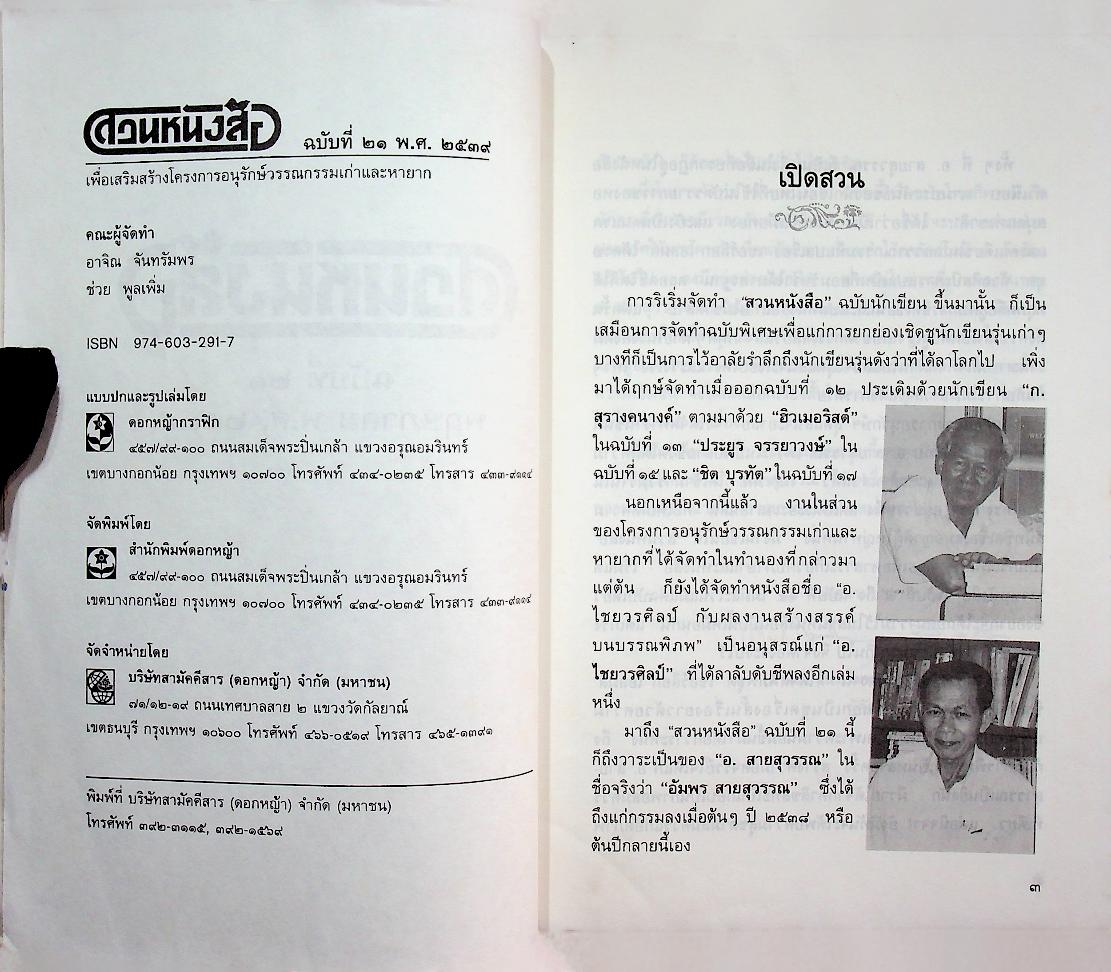 สวนหนังสือ ฉบับที่ ๒๑ พ.ศ. ๒๕๓๙
เพื่อเสริมสร้างโครงการอนุรักษ์วรรณกรรมเก่าและหายาก
คณะผู้จัดทำ
อาจิณ จันทรัมพร
ช่วย พูลเพิ่ม
ISBN 974-603-291-7
แบบปกและรูปเล่มโดย
ดอกหญ้ากราฟิก
๔๕๗/๙๙-๑๐๐ ถนนสมเด็จพระปิ่นเกล้า แขวงอรุณอมรินทร์
เขตบางกอกน้อย กรุงเทพฯ ๑๐๗๐๐ โทรศัพท์ ๔๓๔-๐๒๓๕ โทรสาร ๔๓๓-๙๑๑๔
จัดพิมพ์โดย
สำนักพิมพ์ดอกหญ้า
๔๕๗/๙๙-๑๐๐ ถนนสมเด็จพระปิ่นเกล้า แขวงอรุณอมรินทร์
เขตบางกอกน้อย กรุงเทพฯ ๑๐๗๐๐ โทรศัพท์ ๔๓๔-๐๒๓๕ โทรสาร ๔๓๓-๙๑๑๔
จัดจำหน่ายโดย
บริษัทสามัคคีสาร (ดอกหญ้า) จำกัด (มหาชน)
๗๑/๑๒-๑๙ ถนนเทศบาลสาย ๒ แขวงวัดกัลยาณ์
เขตธนบุรี กรุงเทพฯ ๑๐๖๐๐ โทรศัพท์ ๔๖๖-๐๕๑๙ โทรสาร ๔๖๕-๑๓๙๑
พิมพ์ที่ บริษัทสามัคคีสาร (ดอกหญ้า) จำกัด (มหาชน)
โทรศัพท์ ๓๙๒-๓๑๑๕, ๓๙๒-๑๕๖๙
เปิดสวน
การริเริ่มจัดทำ “สวนหนังสือ” ฉบับนักเขียน ขึ้นมานั้น ก็เป็น
เสมือนการจัดทำฉบับพิเศษเพื่อแก่การยกย่องเชิดชูนักเขียนรุ่นเก่าๆ
บางทีก็เป็นการไว้อาลัยรำลึกถึงนักเขียนรุ่นดังว่าที่ได้ลาโลกไป เพิ่ง
มาได้ฤกษ์จัดทำเมื่อออกฉบับที่ ๑๒ ประเดิมด้วยนักเขียน “ก.
สุรางคนางค์” ตามมาด้วย “ฮิวเมอริสต์”
ในฉบับที่ ๑๓ “ประยูร จรรยาวงษ์” ใน
ฉบับที่ ๑๕ และ “ชิต บุรทัต” ในฉบับที่ ๑๗
นอกเหนือจากนี้แล้ว งานในส่วน
ของโครงการอนุรักษ์วรรณกรรมเก่าและ
หายากที่ได้จัดทำในทำนองที่กล่าวมา
แต่ต้น ก็ยังได้จัดทำหนังสือชื่อ “อ.
ไชยวรศิลป์ กับผลงานสร้างสรรค์
บนบรรณพิภพ” เป็นอนุสรณ์แก่ “อ.
ไชยวรศิลป์” ที่ได้ลาลับดับชีพลงอีกเล่ม
หนึ่ง
มาถึง “สวนหนังสือ” ฉบับที่ ๒๑ นี้
ก็ถึงวาระเป็นของ “อ. สายสุวรรณ” ใน
ชื่อจริงว่า “อัมพร สายสุวรรณ” ซึ่งได้
ถึงแก่กรรมลงเมื่อต้นๆ ปี ๒๕๓๘ หรือ
ต้นปีกลายนี้เอง
๓